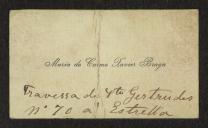 Maria do Carmo Xavier Braga
Travessa de Sta Gertrudes
nº 70 á Estrella